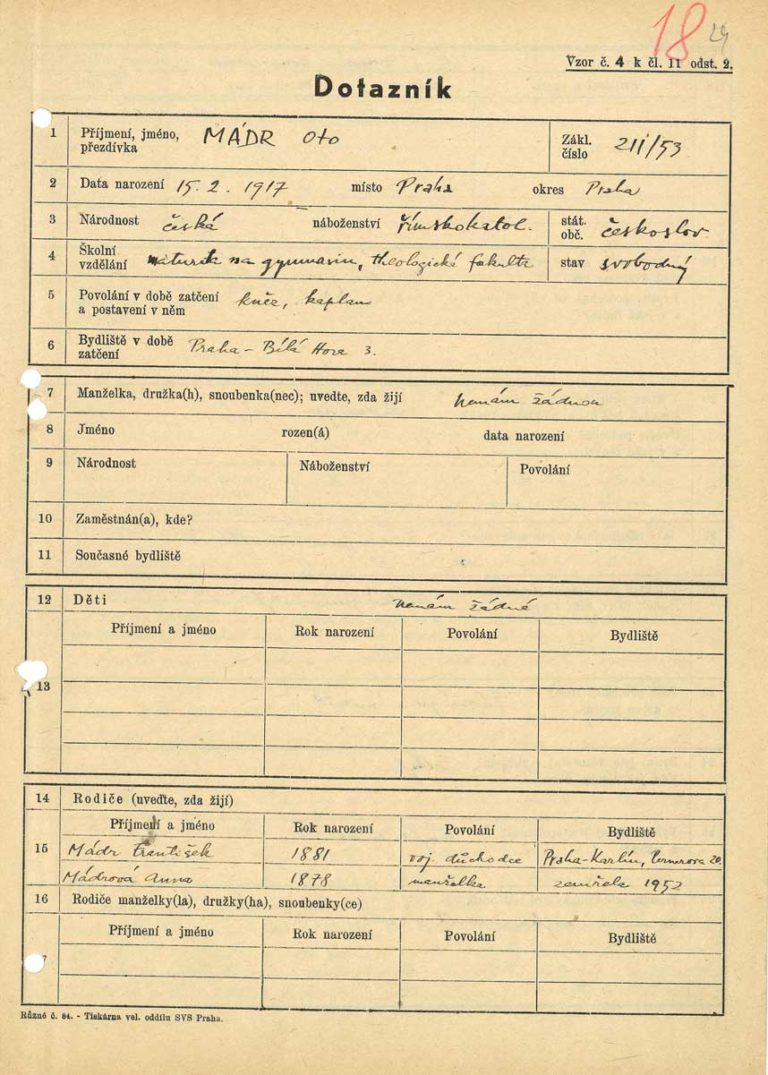 18 24
Vzor č. 4 k čl. 11 odst. 2.
Dotazník
1 Příjmení, jméno, přezdívka MÁDR Oto Zákl. číslo 211/53
2 Data narození 15. 2. 1917 místo Praha okres Praha
3 Národnost česká náboženství římskokatol. stát. obč. českoslov.
4 Školní vzdělání maturita na gymnasiu, theologická fakulta stav svobodný
5 Povolání v době zatčení a postavení v něm kněz, kaplan
6 Bydliště v době zatčení Praha - Bílá Hora 3.
7 Manželka, družka(h), snoubenka(nec); uveďte, zda žijí nemám žádnou
8 Jméno rozen(á) data narození
9 Národnost Náboženství Povolání
10 Zaměstnán(a), kde?
11 Současné bydliště
12 Děti nemám žádné
Příjmení a jméno Rok narození Povolání Bydliště
13
14 Rodiče (uveďte, zda žijí)
Příjmení a jméno Rok narození Povolání Bydliště
15 Mádr František 1881 voj. důchodce Praha-Karlín,
Mádrová Anna 1878 manželka zemřela 1952
16 Rodiče manželky(la), družky(ha), snoubenky(ce)
Příjmení a jméno Rok narození Povolání Bydliště
Různé č. 84. - Tiskárna vel. oddílu SVS Praha.